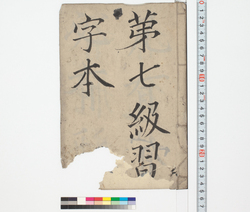 第七級習
字本